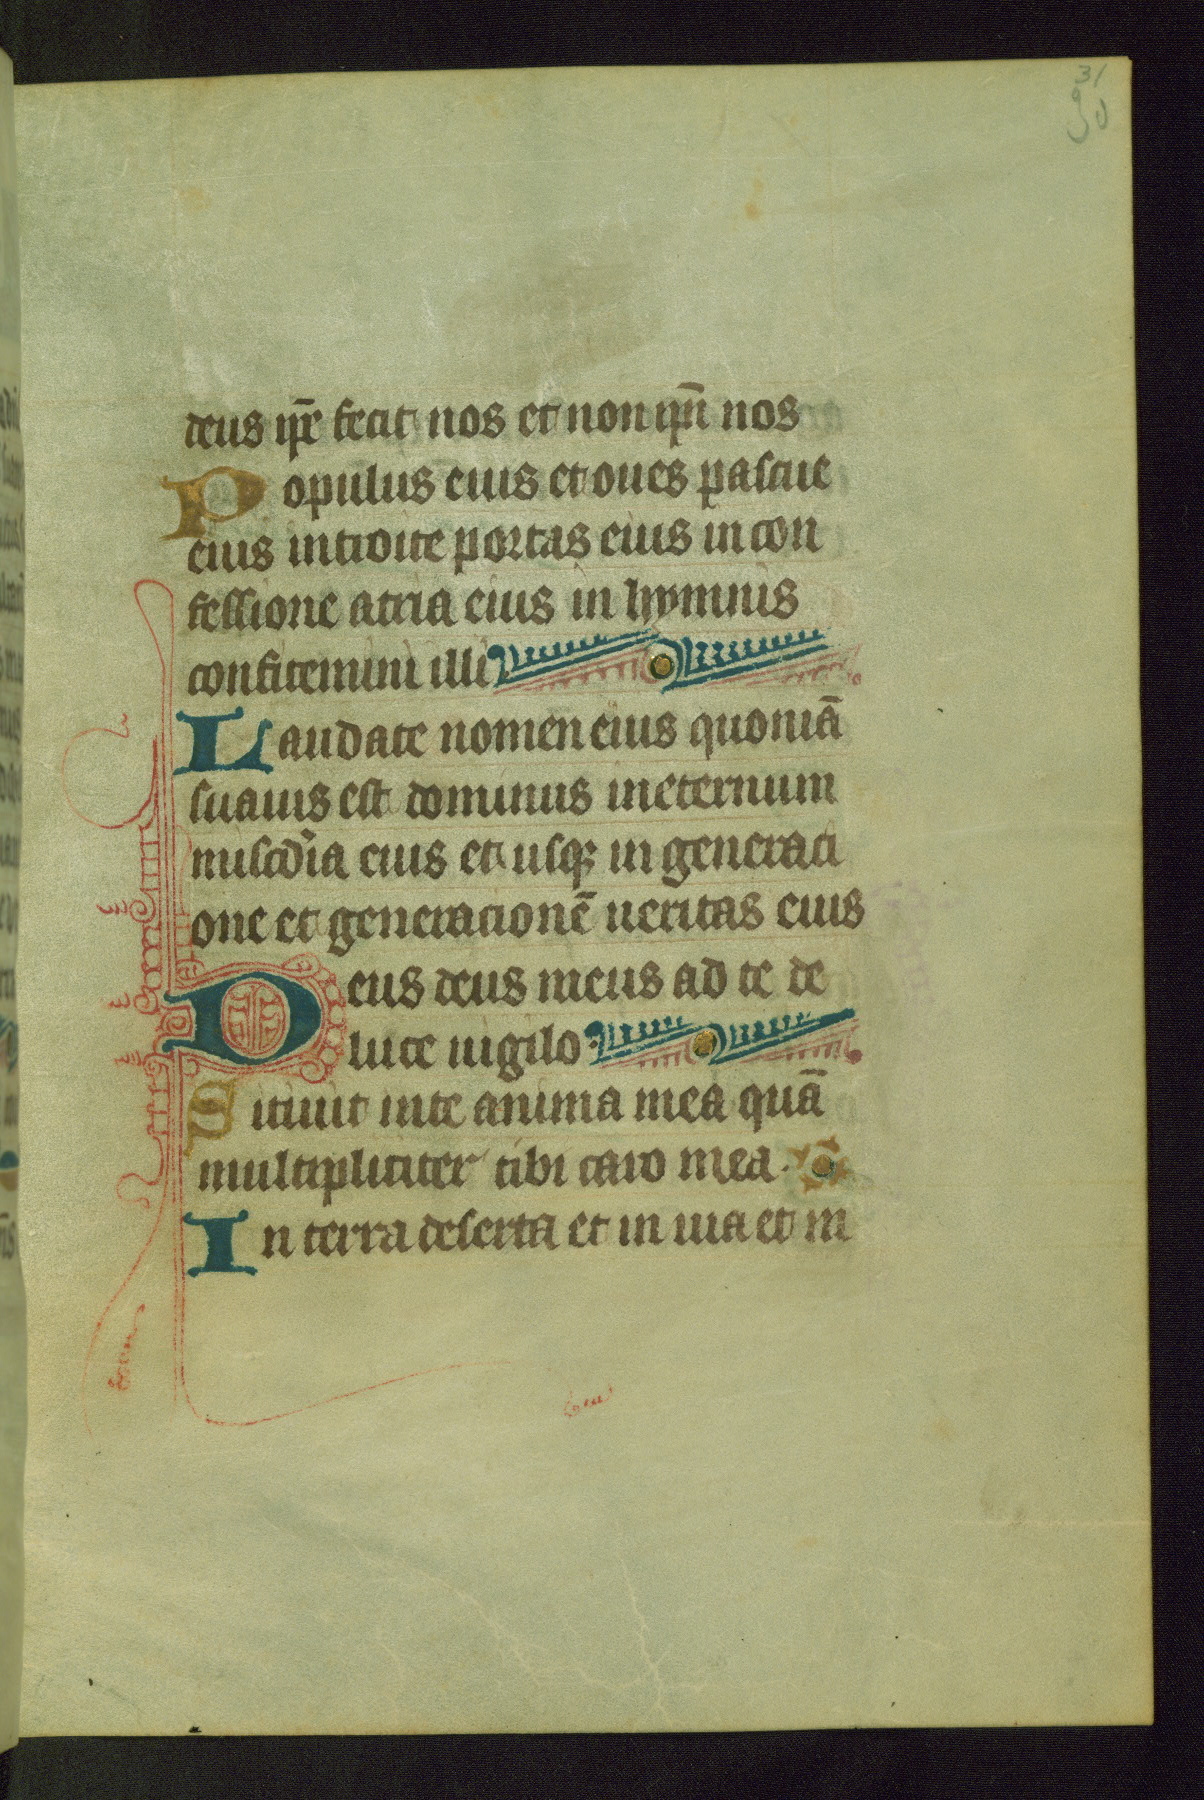 31
30
deus ip̄e fecit nos et non ip̄i nos
Populus eius et oues pascue
eius introite portas eius in con
fessione atria eius in hymnis
confitemini illi
Laudate nomen eius quoniā
suauis est dominus in eternum
misc̄dia eius et usq; in generati
one et generationē ueritas eius
Deus deus meus ad te de
luce uigilo.
Sitiuit in te anima mea quā
multipliciter tibi caro mea.
In terra deserta et in uia et in